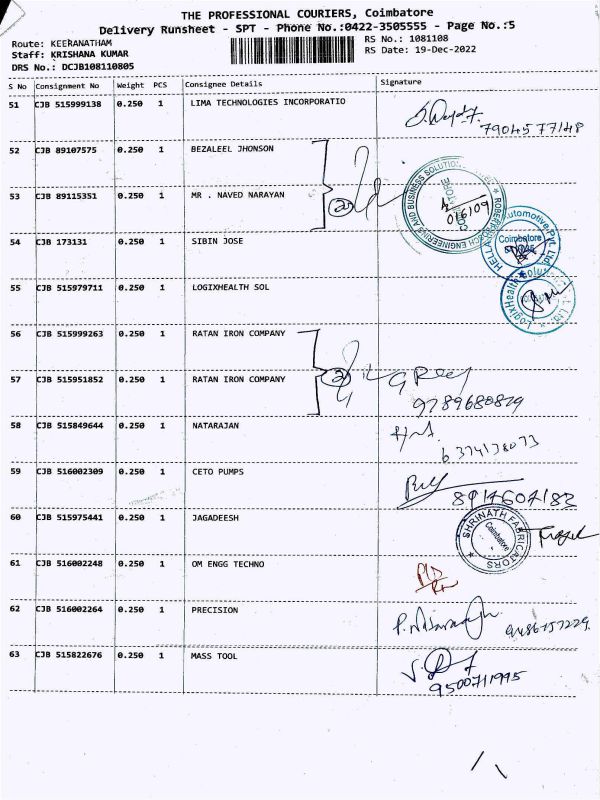 THE PROFESSIONAL COURIERS, Coimbatore
Delivery Runsheet - SPT - Phone No.:0422-3505555 - Page No.:5
Route: KEERANATHAM
RS No.: 1081108
Staff: KRISHANA KUMAR
RS Date: 19-Dec-2022
DRS No.: DCJB108110805
S No Consignment No Weight PCS Consignee Details Signature
51 CJB 515999138 0.250 1 LIMA TECHNOLOGIES INCORPORATIO
7904577148
52 CJB 89107575 0.250 1 BEZALEEL JHONSON
53 CJB 89115351 0.250 1 MR . NAVED NARAYAN
016109
54 CJB 173131 0.250 1 SIBIN JOSE
Coimbatore
55 CJB 515979711 0.250 1 LOGIXHEALTH SOL
56 CJB 515999263 0.250 1 RATAN IRON COMPANY
57 CJB 515951852 0.250 1 RATAN IRON COMPANY
9789680829
58 CJB 515849644 0.250 1 NATARAJAN
6374138073
59 CJB 516002309 0.250 1 CETO PUMPS
60 CJB 515975441 0.250 1 JAGADEESH
SHRINATH FABRICATORS
Coimbatore
61 CJB 516002248 0.250 1 OM ENGG TECHNO
62 CJB 516002264 0.250 1 PRECISION
9486757229
63 CJB 515822676 0.250 1 MASS TOOL
9500711995